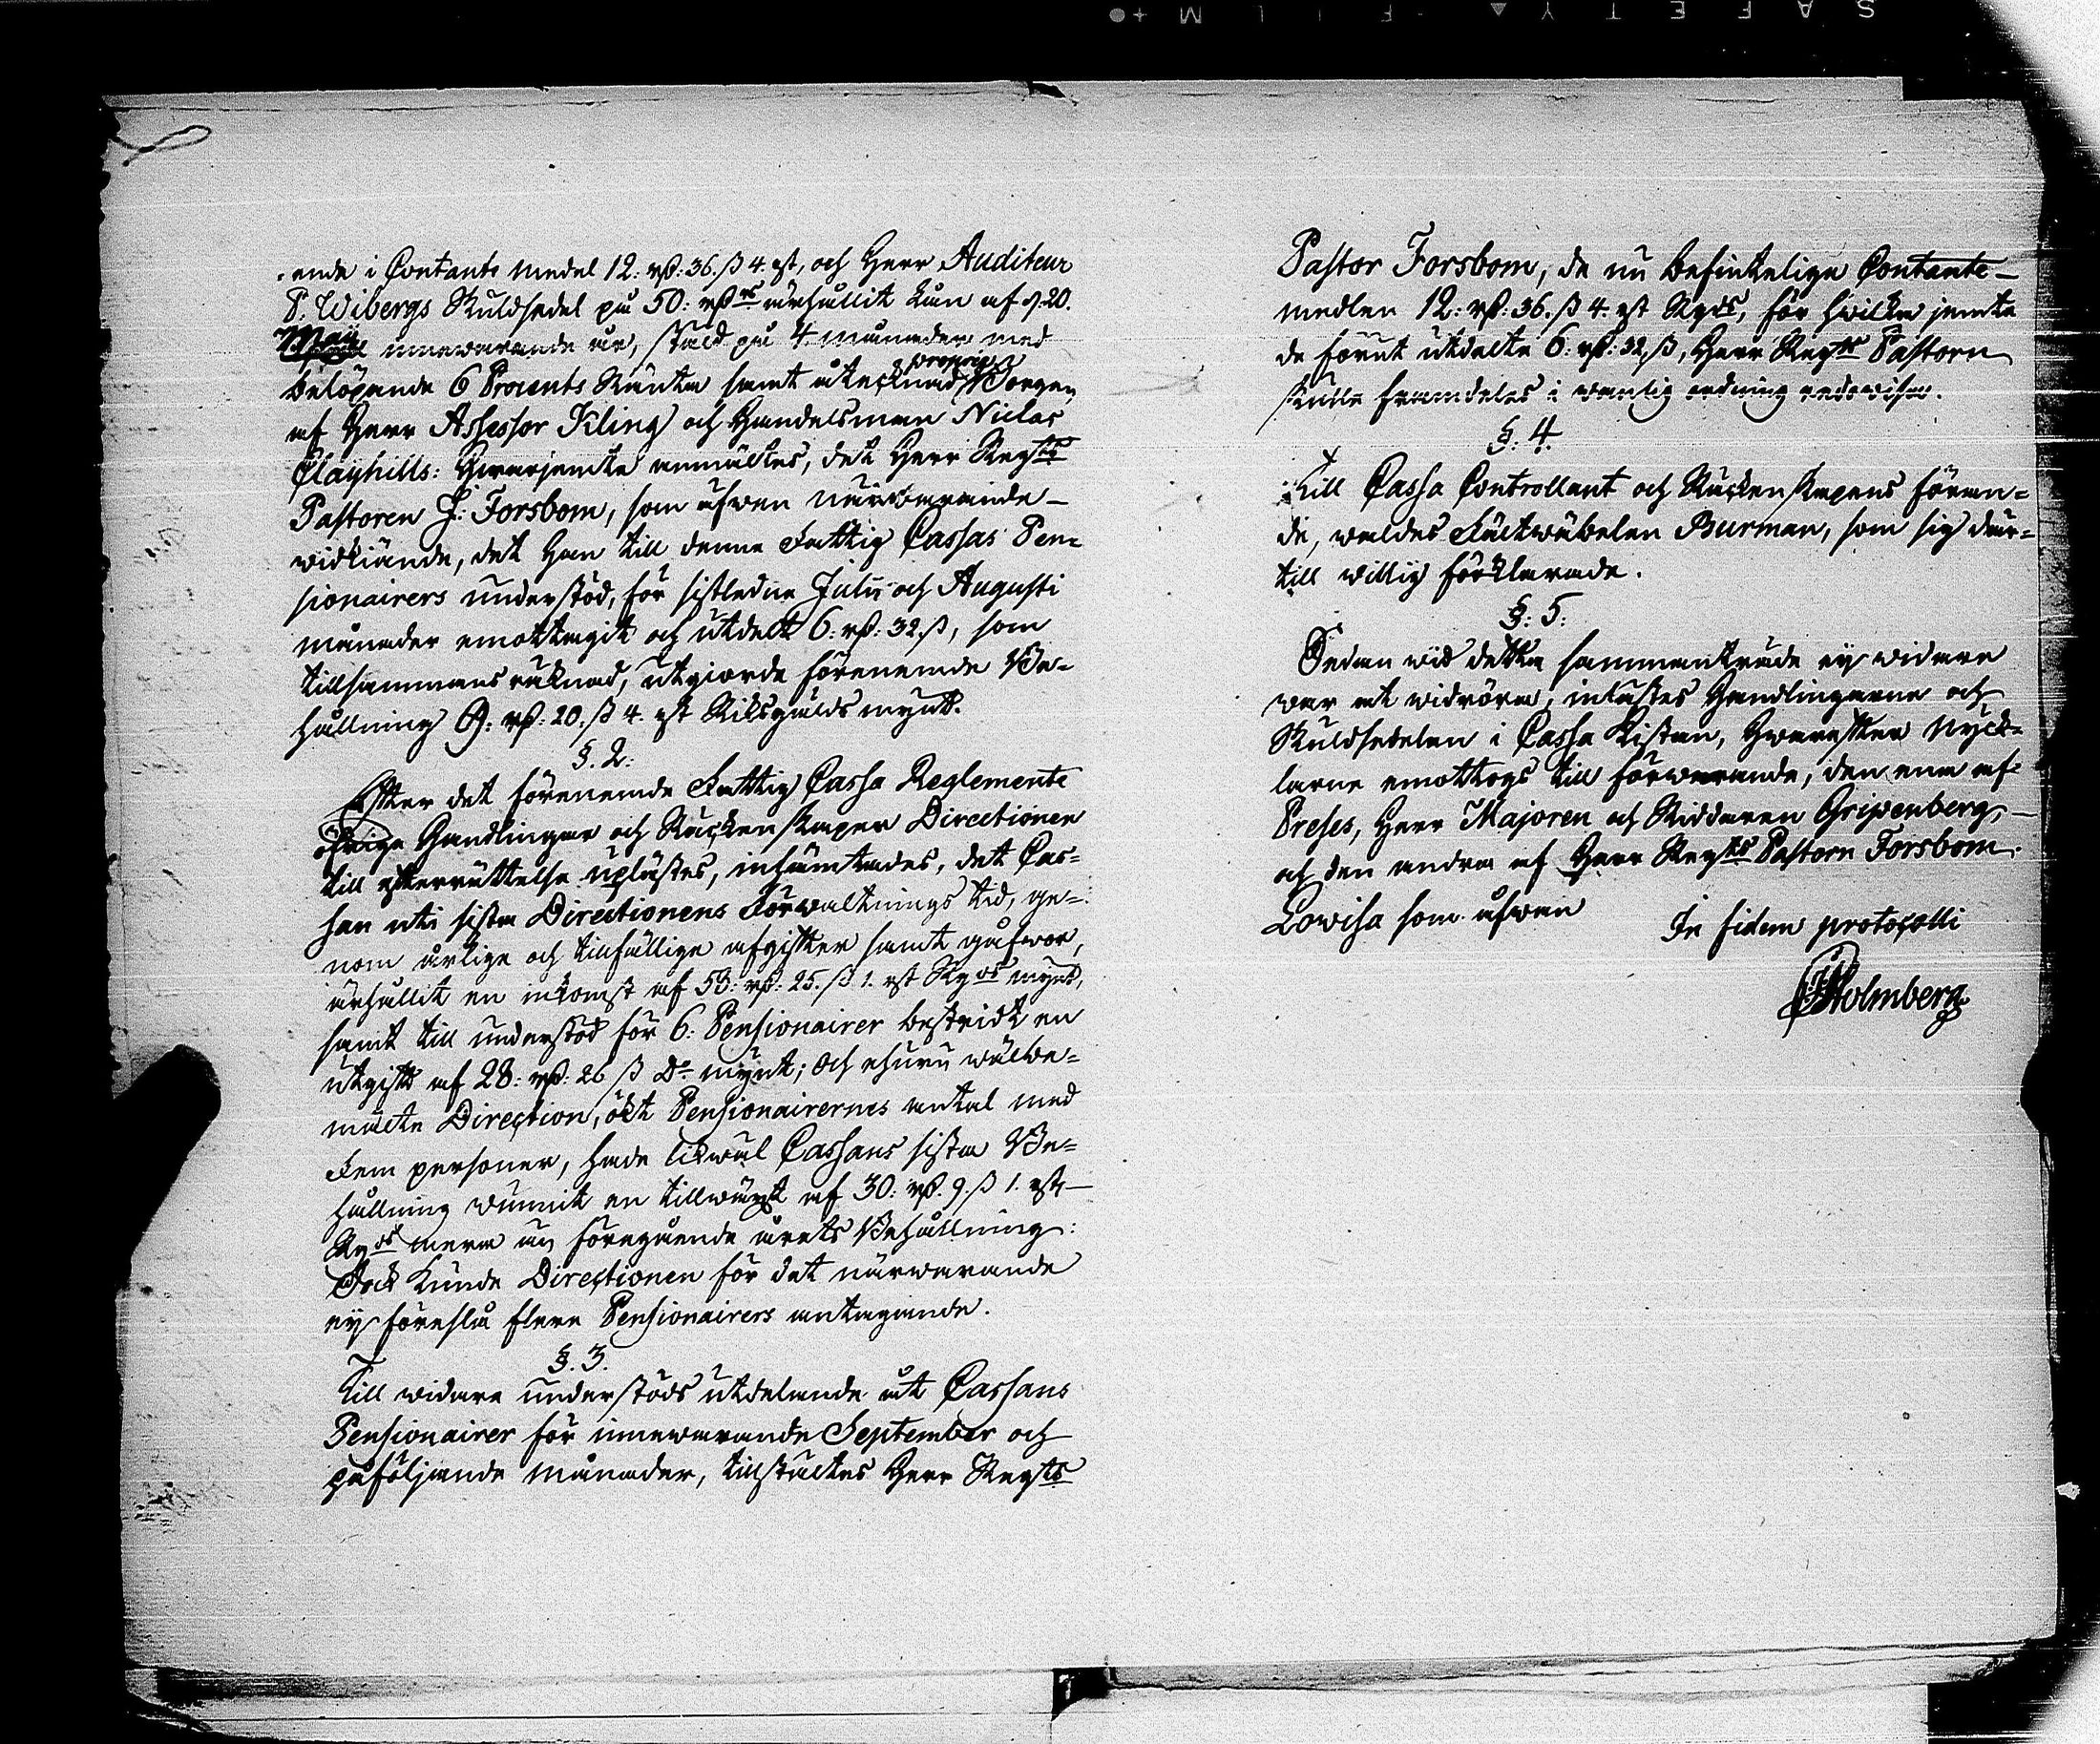 ende i Contante medel 12: rd: 36. ß 4. rst, och Herr Auditeur
P. Wibergs Skuldsedel på 50: rdrs ärhållit Lån af d. 20.
Maij innewarande år, stäld på 4 månader med
belöpande 6 Procents Ränta samt åtecknad proprie Borgen
af Herr Assessor Kling och Handelsman Niclas
Clayhills: Hwarjemte anmältes, det Herr Regts
Pastoren J: Forsbom, som äfwen närwarande
widkiände, det Han till denne Fattig Cassas Pen=
sionairers understöd, för sistledne Julii och Augusti
månader emottagit och utdelt 6: rd: 32. ß, som
tillsammans räknad, utgiorde förenemde Be=
hållning 9: rd: 20. ß 4. rst Riksgälds mynt.
§. 2:
Efter det förenemde Fattig Cassa Reglemente
öfrige Handlingar och Räckenskaper Directionen
till efterrättelse uplästes, inhämtades, det Cas=
san uti sista Directionens Förwaltnings tid, ge=
nom årlige och tilfällige afgifter samt gåfwor,
ärhållit en inkomst af 58: rd: 25. ß 1. rst Rgds mynt,
samt till understöd för 6: Pensionairer bestridt en
utgift af 28: rd: 26 ß Do mynt; Och ehuru wälbe=
mälte Direction, ökt Pensionairernes antal med
Fem personer, hade likwäl Cassans sista Be=
hållning wunnit en tillwäxt af 30: rd. 9. ß 1. rst
Rgds mera än föregående årets Behållning:
Dock kunde Directionen för det närwarande
ej föreslå flere Pensionairers antagande.
§. 3.
Till widare understöds utdelande åt Cassans
Pensionairer för innewarande September och
påföljande månader, tillstältes Herr Regts
Pastor Forsbom, de nu befintelige Contante
medlen 12: rd: 36. ß 4. rst Rgds, för hwilka jemte
de förut utdelte 6: rd: 32. ß, Herr Regts Pastorn
skulle framdeles i wanlig ordning redowisa.
§. 4.
Till Cassa Controllant och Räckenskapens föran=
de, waldes Fältwäbelen Burman, som sig där=
till willig förklarade.
§. 5:
Sedan wid detta sammanträde ej widare
war at widröra, inlästes Handlingarne och
Skuldsedelen i Cassa Kistan, Hwarefter Nyck=
larne emottogs till förwarande, den ena af
Preses, Herr Majoren och Riddaren Gripenberg,
och den andra af Herr Regts Pastorn Forsbom.
Lowisa som äfwen
In fidem protocolli
Holmberg